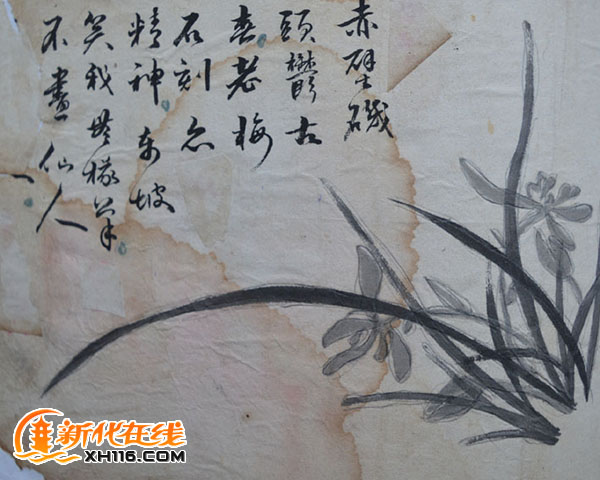 赤壁磯
頭鬱古
春老梅
石刻亦
精神東坡
笑我無椽筆
不畫仙人
一
新化在线
XH116.COM